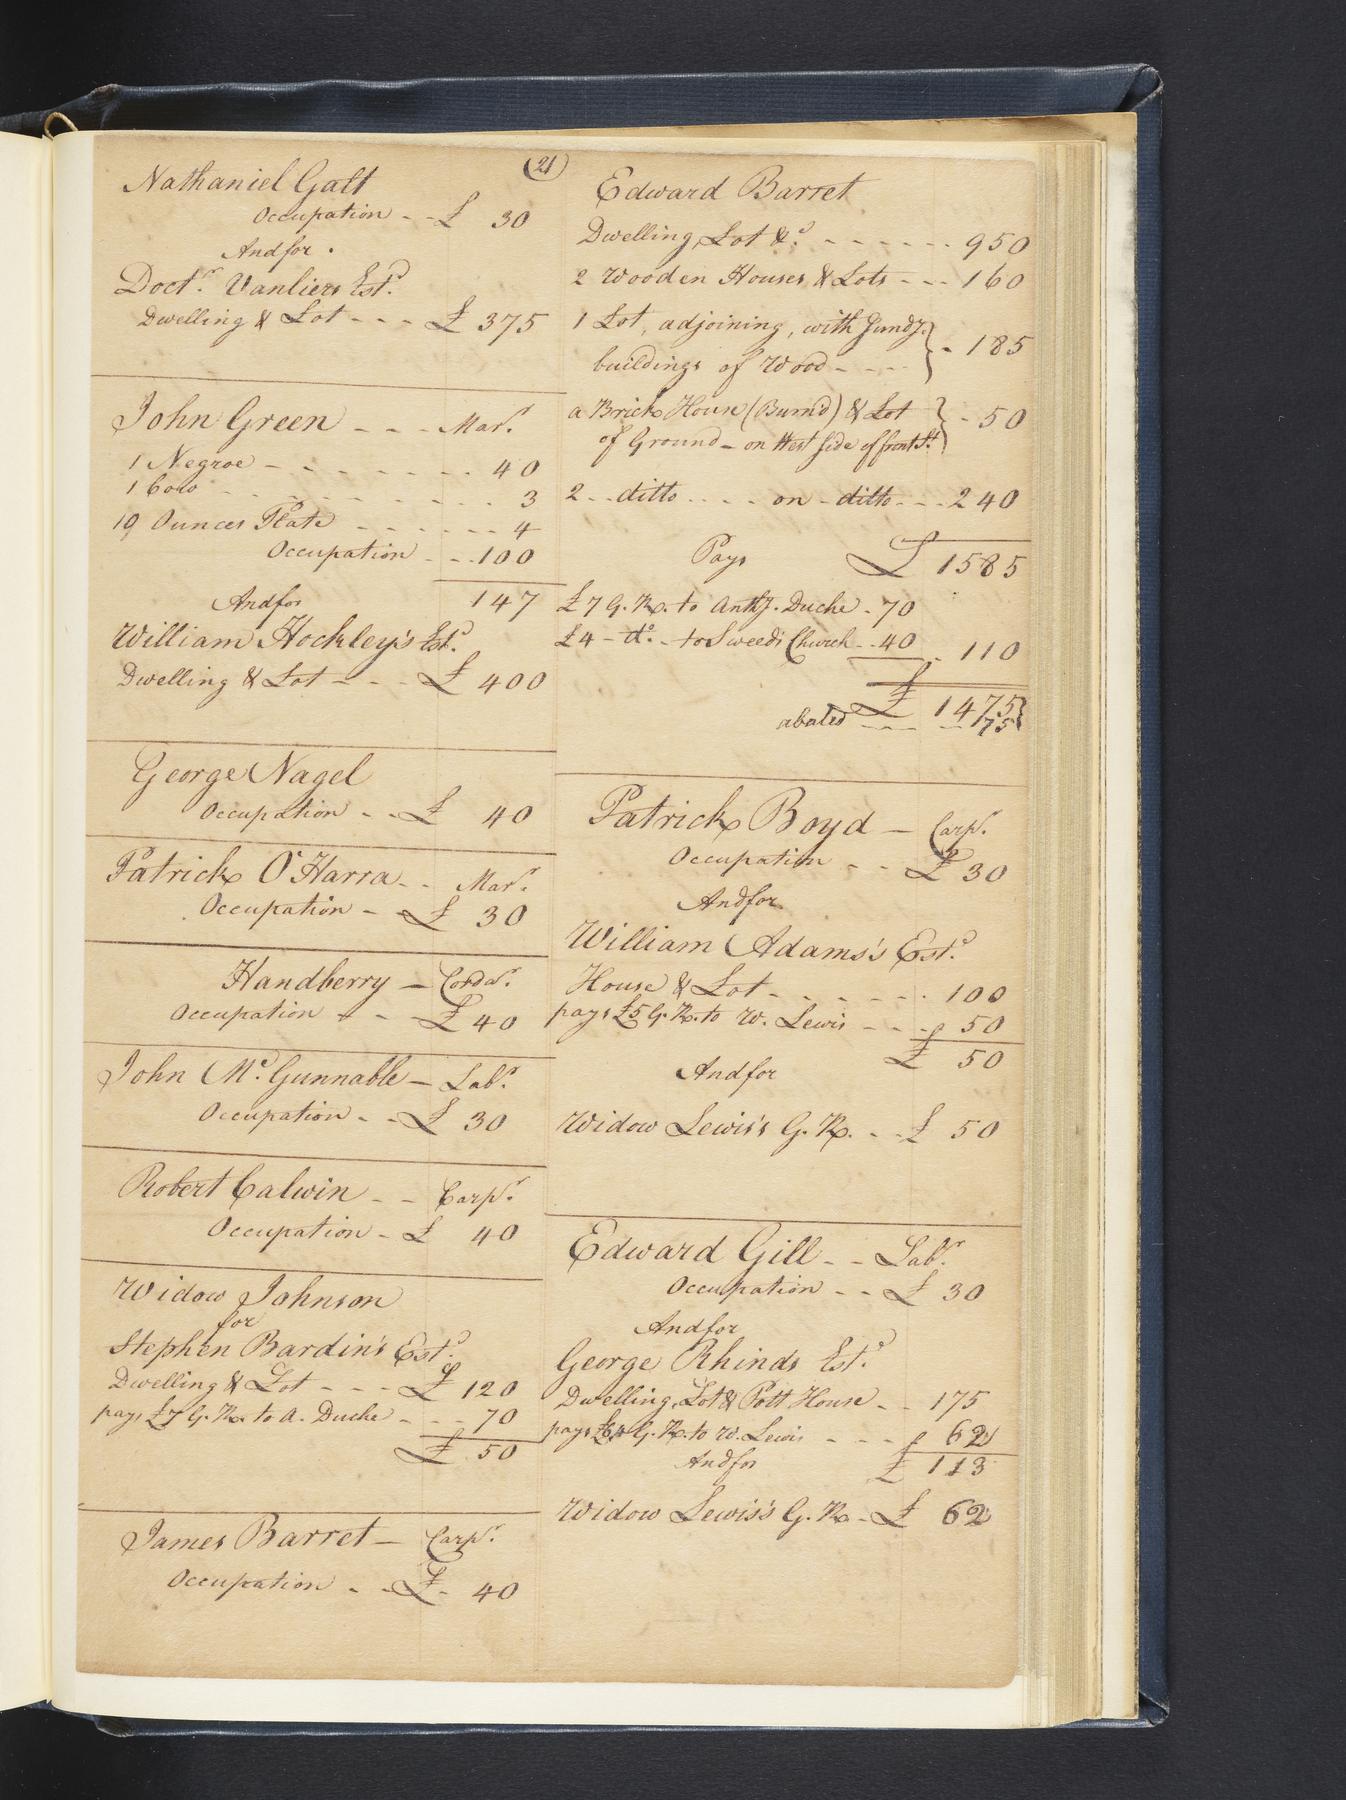 (21)
Nathaniel Galt
Occupation - - £ 30
And for
Doctr. Vanliers Estd.
Dwelling & Lot - - - £ 375
John Green - - - Marr.
1 Negroe - - - - - - - 40
1 Cow - - - - - - - - 3
19 Ounces Plate - - - - - - 4
Occupation - - - 100
147
And for
William Hockley's Estd.
Dwelling & Lot - - - £ 400
George Nagel
Occupation - - £ 40
Patrick O'Harra - - Marr.
Occupation - - £ 30
Handberry - Cordwr.
Occupation - - - £ 40
John Mc. Gunnable - Labr.
Occupation - - £ 30
Robert Calwin - - Carpr.
Occupation - £ 40
Widow Johnson
for
Stephen Bardin's Estd.
Dwelling & Lot - - - £ 120
pays £7 G. R. to A. Duche - - - 70
£ 50
James Barret - Carpr.
Occupation - - £ - 40
Edward Barret
Dwelling, Lot &c. - - - - - - 950
2 Wooden Houses & Lots - - - 160
1 Lot, adjoining, with Sundy.
buildings of Wood - - - - } - 185
a Brick House (Burn'd) & Lot
of Ground - on West side of front St. } - 50
2 - - ditto - - - - on - ditto - - - 240
Pays £ 1585
£7 G. R. to Anthy. Duche - 70
£4 - do. - to Sweeds Church - - 40 - 110
£ 1475
abated - - - - - 175
Patrick Boyd - Carpr.
Occupation - - £ 30
And for
William Adams's Estd.
House & Lot - - - - - - - 100
pays £5 G. R. to W. Lewis - - - 50
£ 50
And for
Widow Lewis's G. R. - - £ 50
Edward Gill - - Labr.
Occupation - - £ 30
And for
George Rhinds Estd.
Dwelling, Lot & Pott House - - 175
pays G. R. to W. Lewis - - - 62
£ 113
And for
Widow Lewis's G. R. - £ 62